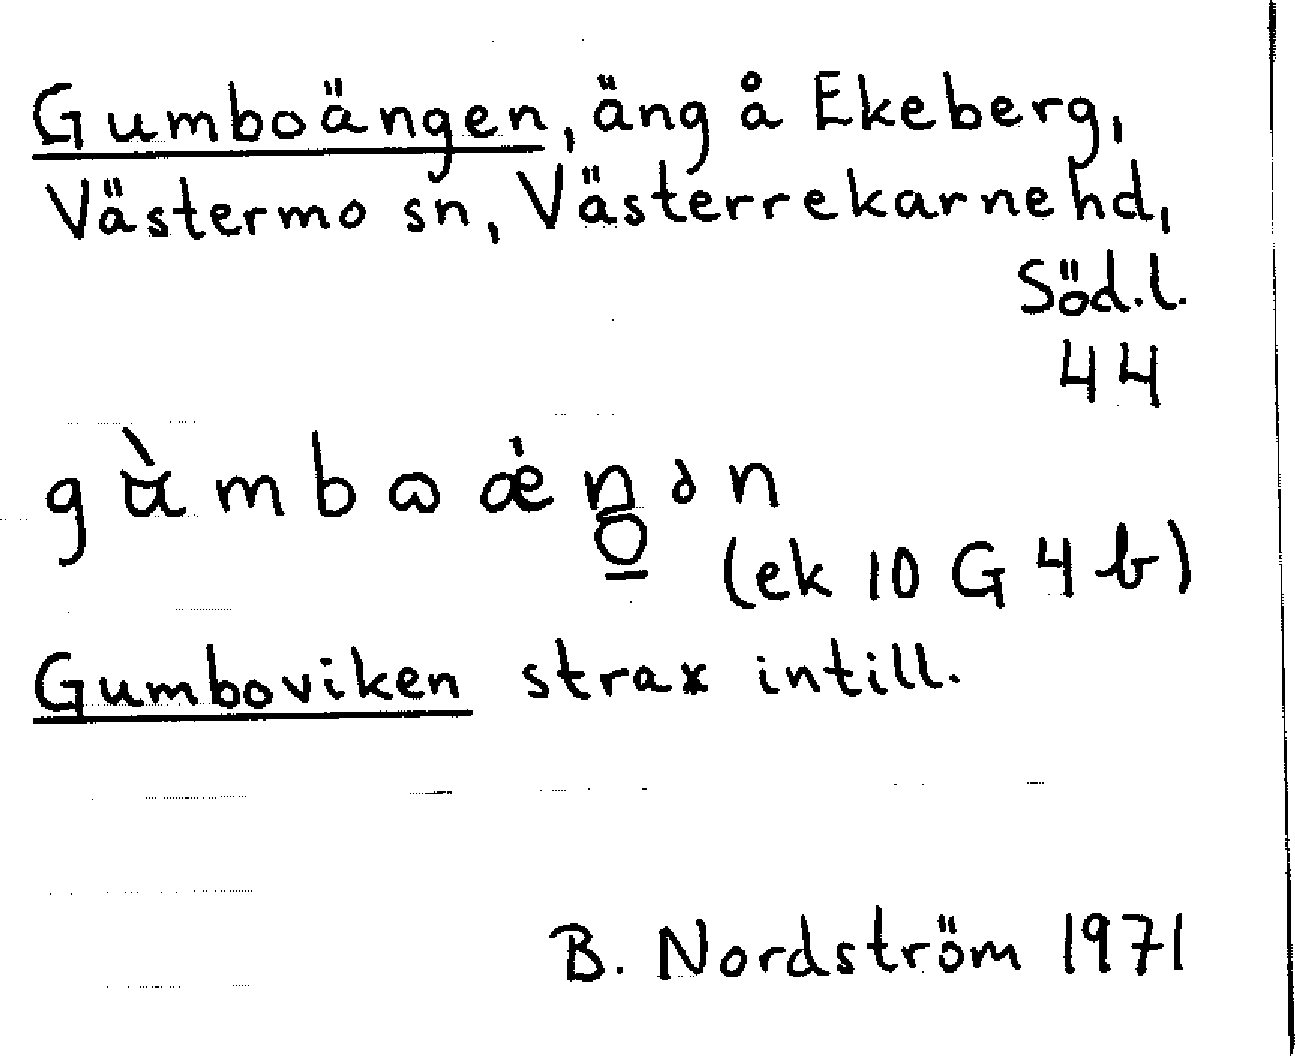 Gumboängen, äng å Ekeberg,
Västermo sn, Västerrekarne hd,
Söd.l.
44
(ek 10 G 4 b)
Gumboviken strax intill.
B. Nordström 1971